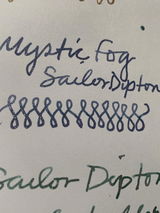 Mystic Fog
Sailor Dipton
Sailor Dipton